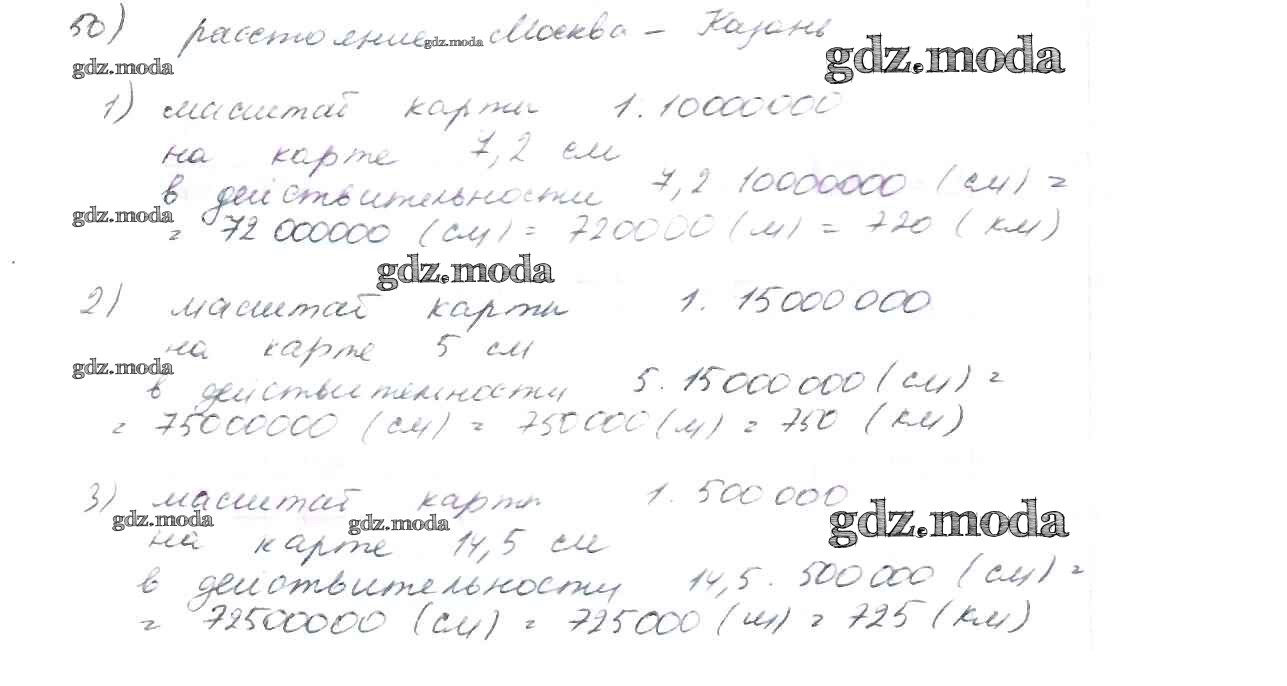 50) расстояние Москва - Казань
gdz.moda
gdz.moda
gdz.moda
1) масштаб карты 1:10000000
на карте 7,2 см
в действительности 7,2 10000000 (см) =
gdz.moda
= 72 000000 (см) = 720000 (м) = 720 (км)
gdz.moda
2) масштаб карты 1:15000 000
на карте 5 см
gdz.moda
в действительности 5·15000 000 (см) =
= 75000000 (см) = 750000 (м) = 750 (км)
3) масштаб карты 1:500 000
gdz.moda
gdz.moda
gdz.moda
на карте 14,5 см
в действительности 14,5·500 000 (см) =
= 72500000 (см) = 725000 (м) = 725 (км)